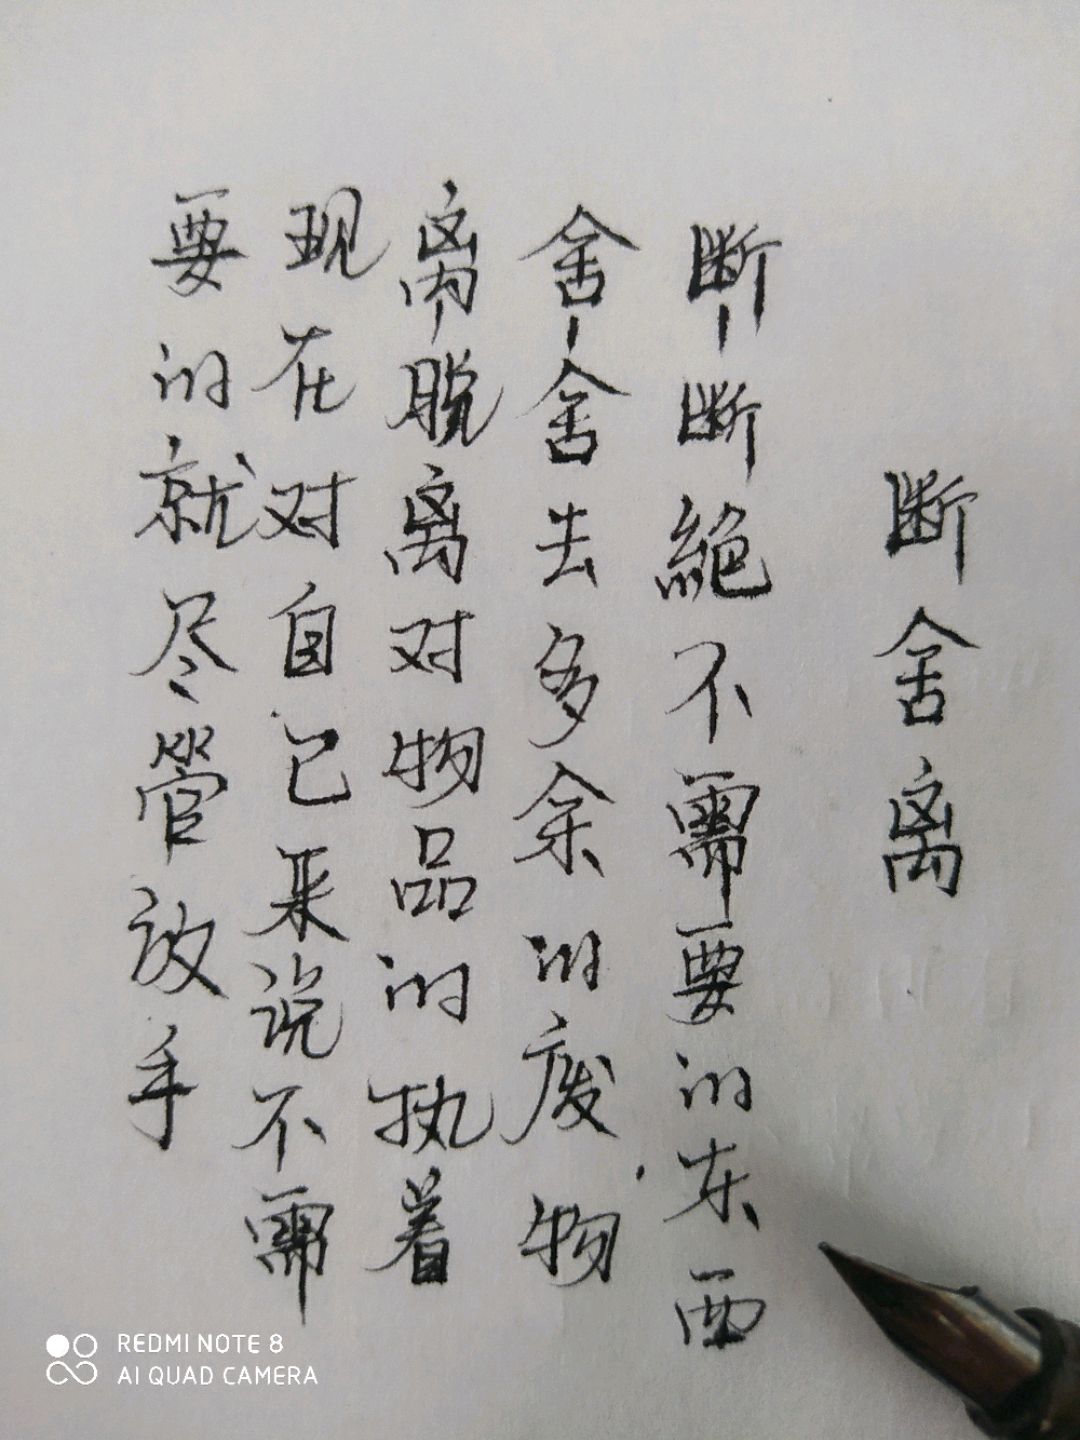 断舍离
断-断絕不需要的东西
舍-舍去多余的废物
离-脱离对物品的执着
现在对自己来说不需
要的就尽管放手
REDMI NOTE 8
AI QUAD CAMERA